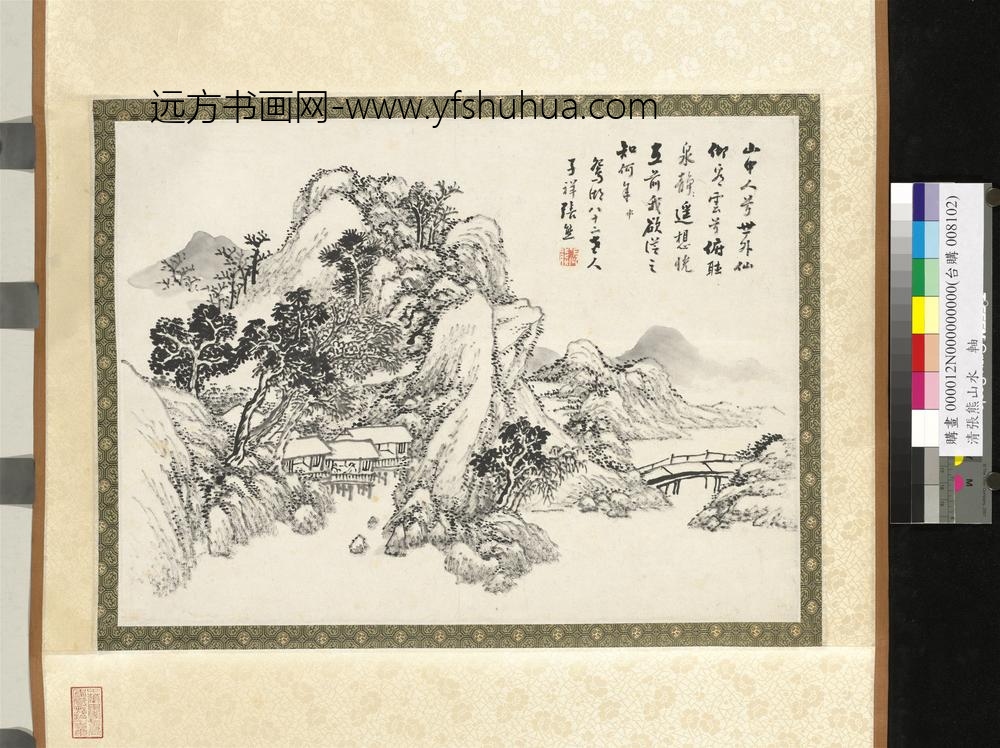 远方书画网-www.yfshuhua.com
山中人兮世外仙
仰看雲兮俯聽
泉 遥想恍
在前我欲從之
知何年
鴛湖八十二老人
子祥張熊
購畫 000012N000000000(台購 008102)
清張熊山水 軸